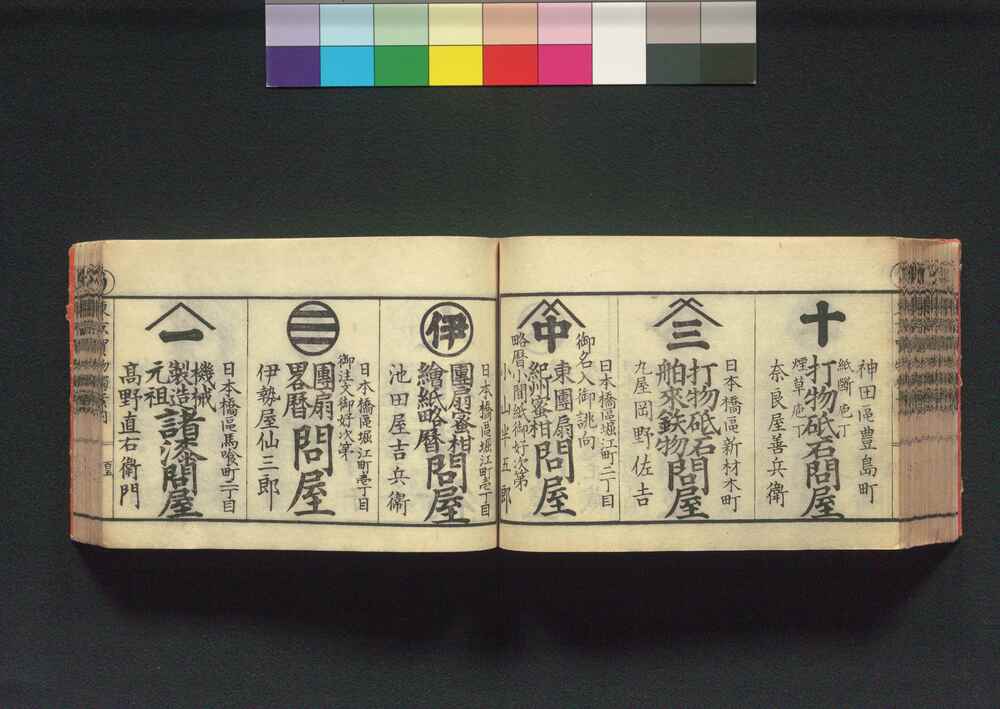 十
神田區豊島町
紙断庖丁
煙草庖丁
打物砥石問屋
奈良屋善兵衛
三
日本橋區新材木町
打物砥石
舶来鉄物
問屋
九屋岡野佐吉
中
御名入御誂向
日本橋區堀江町二丁目
東團扇
紀州蜜柑
問屋
略暦八間紙御好次第
小山半五郎
伊
日本橋區堀江町壱丁目
團扇蜜柑
繪紙略暦
問屋
池田屋吉兵衞
三
日本橋區堀江町壱丁目
御注文御好次第
團扇
畧暦
問屋
伊勢屋仙三郎
一
日本橋區馬喰町二丁目
機械
製造
元祖
諸漆問屋
髙野直右衛門